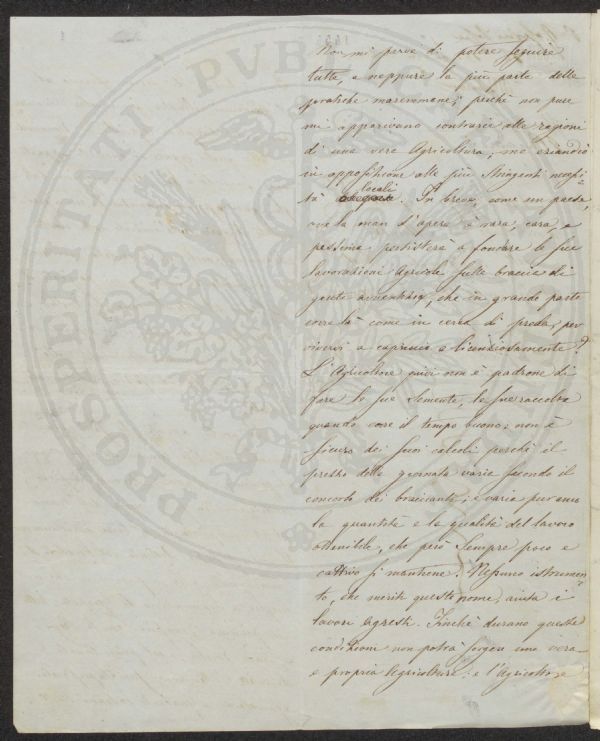 PROSPERITATI PVBLICAE
Non mi parve di potere seguire
tutte, e neppure la più parte delle
pratiche maremmane; perchè non pure
mi apparivano contrarie alle ragioni
di una vera Agricoltura, ma eziandio
in apposizione alle più stringenti necessi=
tà locali. In breve, come un paese,
ove la man d'opera è rara, cara, e
pessima persisterà a fondare le sue
lavorazioni agricole sulle braccia di
gente avventizia, che in grande parte
corre là come in cerca di preda, per
vivervi a capriccio e licenziosamente?
L'Agricoltore quivi non è padrone di
fare le sue semente, le sue raccolte
quando corre il tempo buono; non è
sicuro dei suoi calcoli perchè il
prezzo delle giornate varia secondo il
concorso dei braccianti; e varia pur anco
la quantità e la qualità del lavoro
ottenibile, che però sempre poco e
cattivo si mantiene. Nessuno istrumen=
to, che meriti questo nome, aiuta i
lavori agresti. Finchè durano queste
condizioni non potrà sorgere una vera
e propria Agricoltura: e l'Agricoltore